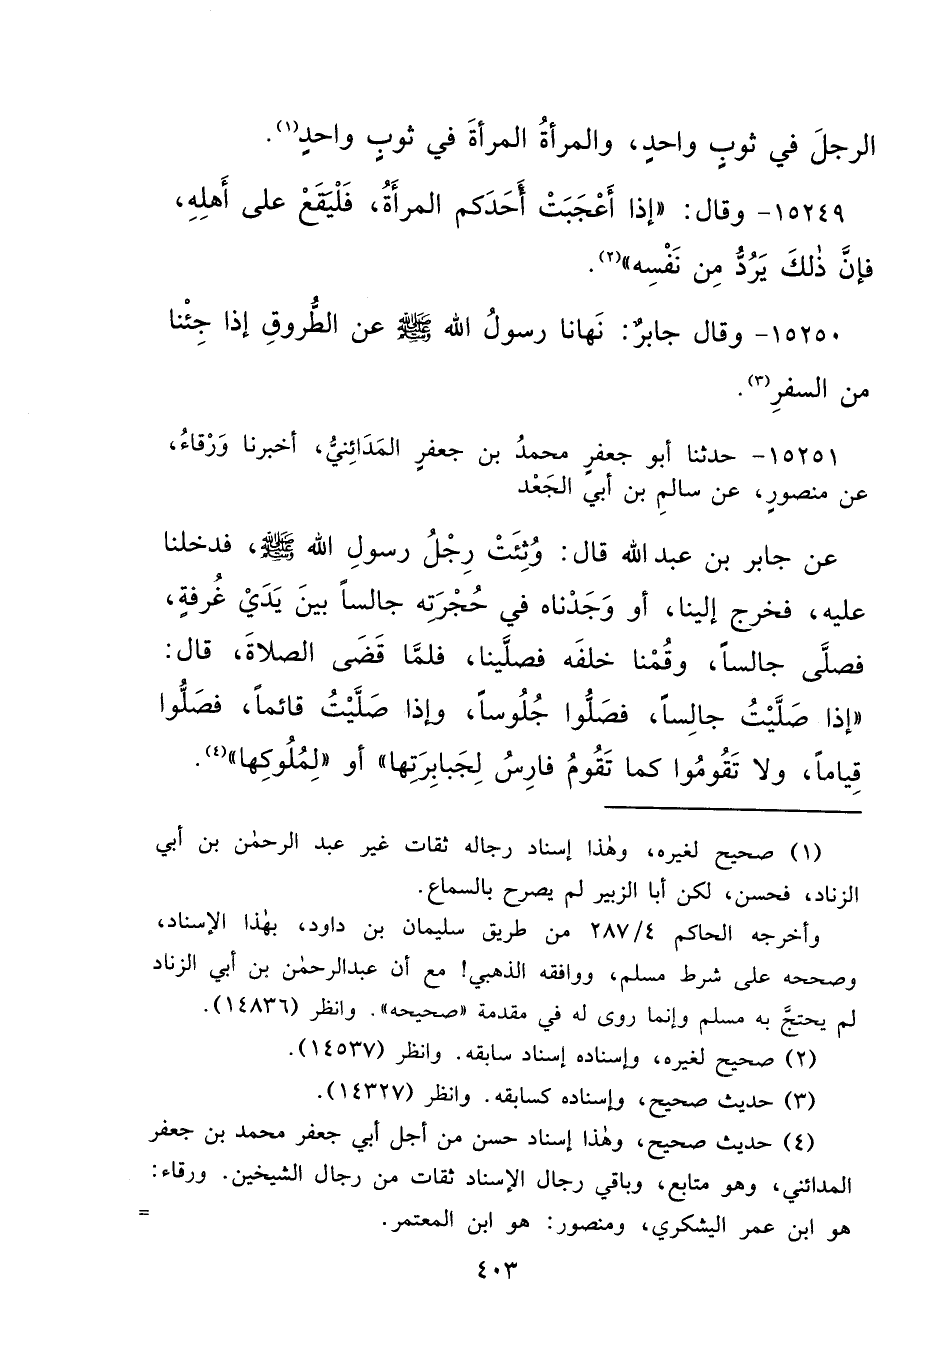 الرجلَ في ثوبٍ واحدٍ، والمرأةُ المرأةَ في ثوبٍ واحدٍ(١).
١٥٢٤٩- وقال: «إذا أَعْجَبَتْ أَحَدَكم المرأَةُ، فَلْيَقَعْ على أَهلِهِ،
فإنَّ ذٰلكَ يَرُدُّ مِن نَفْسِه»(٢).
١٥٢٥٠- وقال جابرٌ: نَهانا رسولُ الله ﷺ عن الطُّروقِ إذا جِئْنا
من السفرِ(٣).
١٥٢٥١- حدثنا أبو جعفرٍ محمدُ بن جعفرٍ المَدَائِنيُّ، أخبرنا وَرْقاءُ،
عن منصورٍ، عن سالمِ بن أبي الجَعْد
عن جابر بن عبد الله قال: وُثِئَتْ رِجْلُ رسولِ الله ﷺ، فدخلنا
عليه، فخرج إلينا، أو وَجَدْناه في حُجْرَتِه جالساً بينَ يَدَيْ غُرفةٍ،
فصلَّى جالساً، وقُمْنا خلفَه فصلَّينا، فلمَّا قَضَى الصلاةَ، قال:
«إذا صَلَّيْتُ جالِساً، فصَلُّوا جُلُوساً، وإذا صَلَّيْتُ قائماً، فصَلُّوا
قِياماً، ولا تَقُومُوا كما تَقُومُ فارِسُ لِجَبابِرَتِها» أو «لِمُلُوكِها»(٤).
(١) صحيح لغيره، وهٰذا إسناد رجاله ثقات غير عبد الرحمٰن بن أبي
الزناد، فحسن، لكن أبا الزبير لم يصرح بالسماع.
وأخرجه الحاكم ٢٨٧/٤ من طريق سليمان بن داود، بهٰذا الإسناد،
وصححه على شرط مسلم، ووافقه الذهبي! مع أن عبدالرحمٰن بن أبي الزناد
لم يحتجَّ به مسلم وإنما روى له في مقدمة «صحيحه». وانظر (١٤٨٣٦).
(٢) صحيح لغيره، وإسناده إسناد سابقه. وانظر (١٤٥٣٧).
(٣) حديث صحيح، وإسناده كسابقه. وانظر (١٤٣٢٧).
(٤) حديث صحيح، وهٰذا إسناد حسن من أجل أبي جعفر محمد بن جعفر
المدائني، وهو متابع، وباقي رجال الإسناد ثقات من رجال الشيخين. ورقاء:
هو ابن عمر اليشكري، ومنصور: هو ابن المعتمر. =
٤٠٣